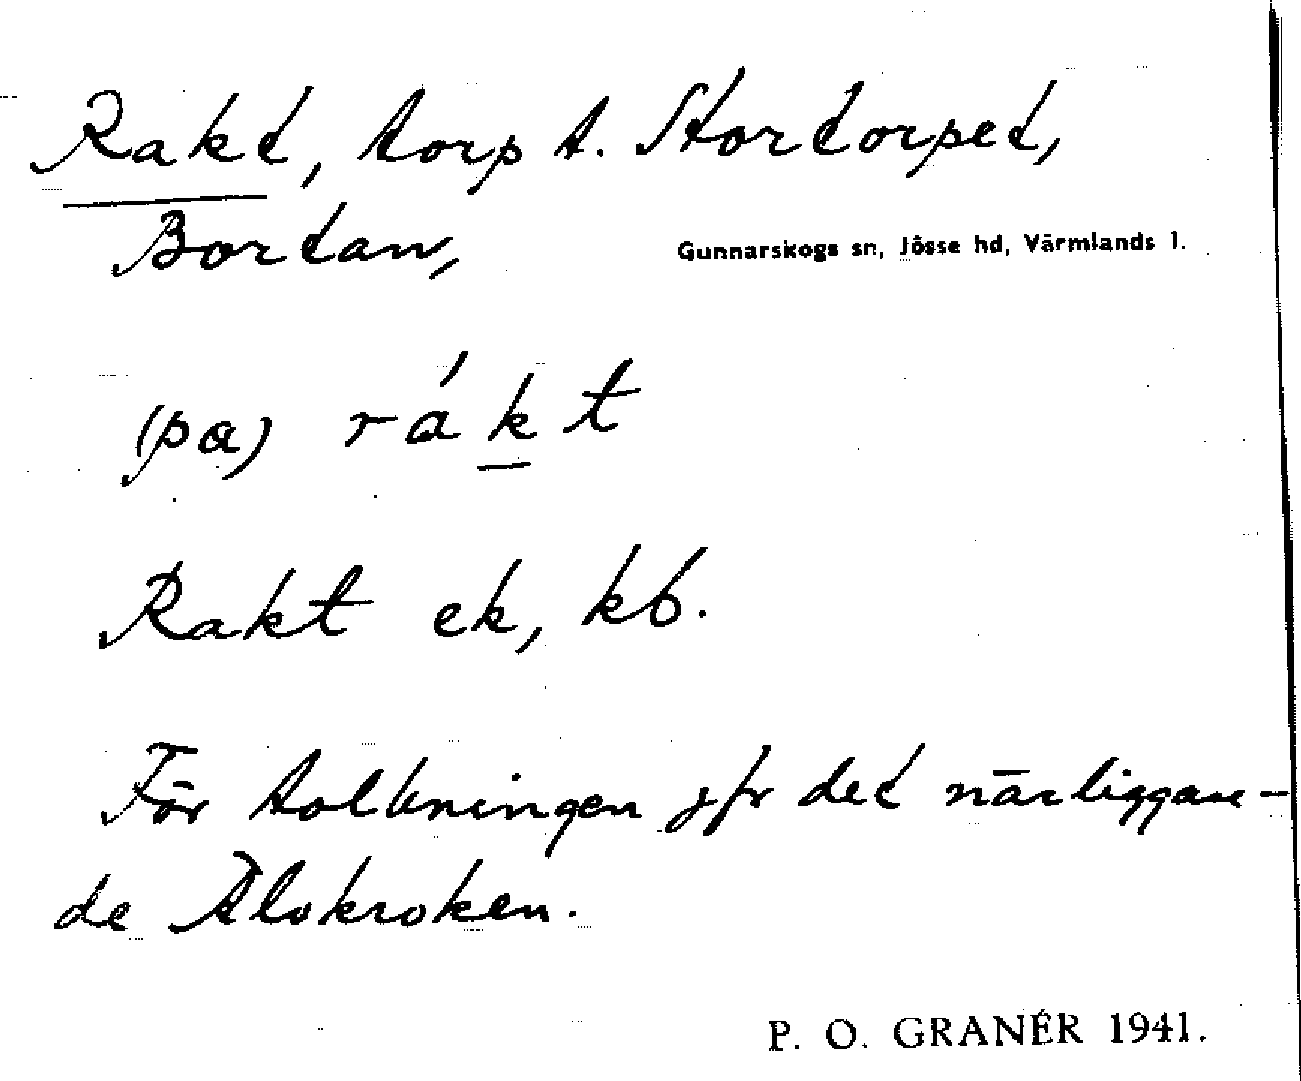 Rakt, torp t. Stortorpet,
Bortan,
Gunnarskogs sn, Jösse hd, Värmlands l.
(pa) rákt
Rakt ek, kb.
För tolkningen jfr det närliggan-
de Älvkroken.
P. O. GRANÉR 1941.